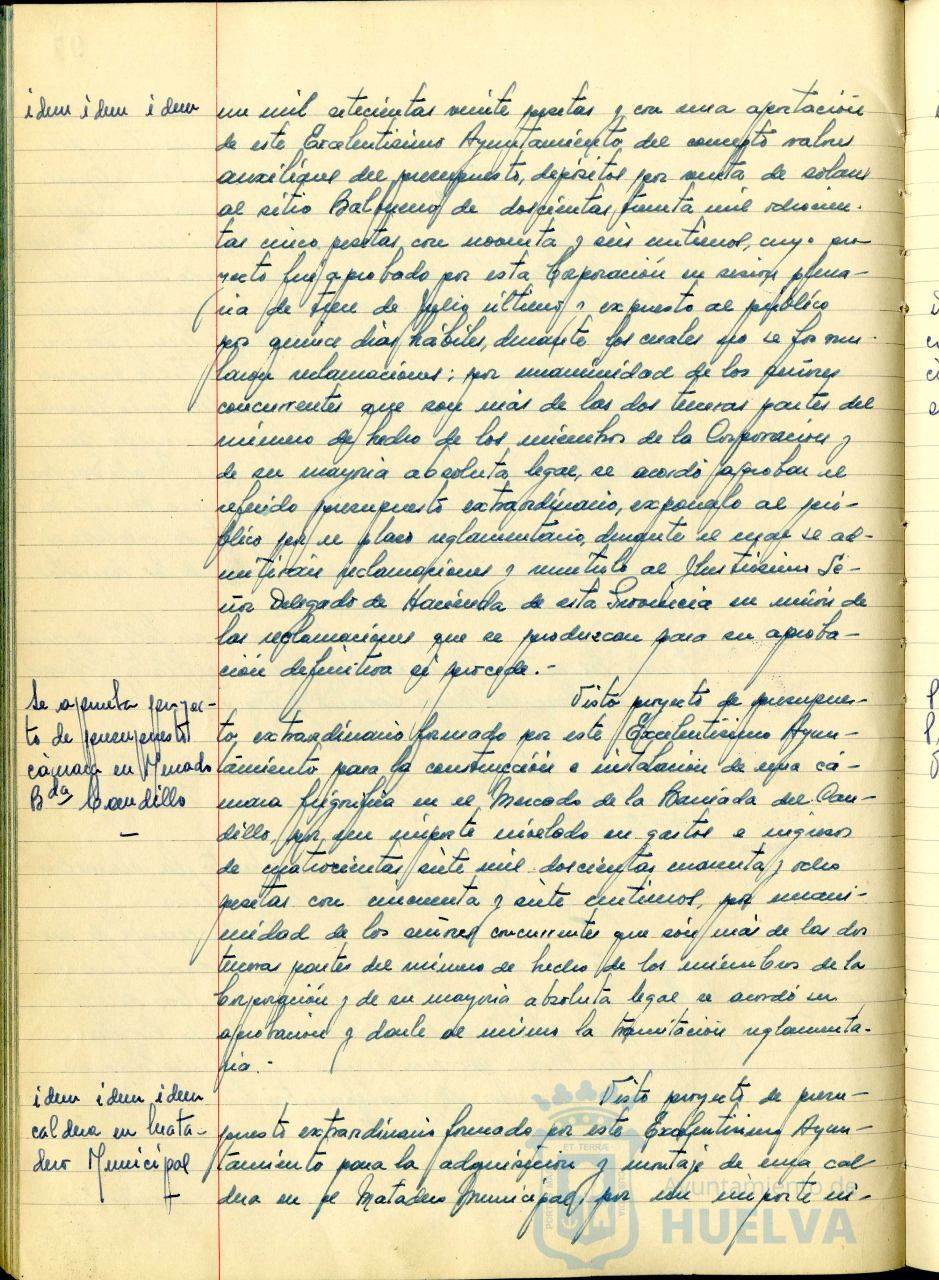 idem idem idem
un mil setecientas veinte pesetas y con una aportación
de este Excelentisimo Ayuntamiento, del concepto valores
auxiliares del presupuesto, depósitos, por venta de solares
al sitio Balbueno de doscientas treinta mil ochocien-
tas cinco pesetas con noventa y seis centimos, cuyo pro-
yecto fue aprobado por esta Corporación en sesión plena-
ria de trece de Julio último y expuesto al público
por quince dias hábiles, durante los cuales no se formu-
laron reclamaciones; por unanimidad de los señores
concurrentes que son más de las dos terceras partes del
número de hecho de los miembros de la Corporación y
de su mayoria absoluta legal, se acordó aprobar el
referido presupuesto extraordinario, exponerlo al pú-
blico por el plazo reglamentario, durante el cual se ad-
mitirán reclamaciones y remitirlo al Ilustrisimo Se-
ñor Delegado de Hacienda de esta Provincia en unión de
las reclamaciones que se produzcan para su aproba-
ción definitiva si procede.-
Se aprueba proyec-
to de presupuesto
cámara en Mercado
Bda Candillo
Visto proyecto de presupues-
to extraordinario formado por este Excelentisimo Ayun-
tamiento para la construcción e instalación de una cá-
mara frigorifica en el Mercado de la Barriada del Can-
dillo, por un importe nivelado en gastos e ingresos
de cuatrocientas siete mil doscientas cuarenta y ocho
pesetas con cincuenta y siete centimos, por unani-
midad de los señores concurrentes que són más de las dos
terceras partes del número de hecho de los miembros de la
Corporación y de su mayoria absoluta legal se acordó su
aprobación y darle al mismo la tramitación reglamenta-
ria.-
idem idem idem
caldera en Mata-
dero Municipal
Visto proyecto de presu-
puesto extraordinario formado por este Excelentisimo Ayun-
tamiento para la adquisición y montaje de una cal
dera en el Matadero Municipal, por un importe ni-
Ayuntamiento de
HUELVA